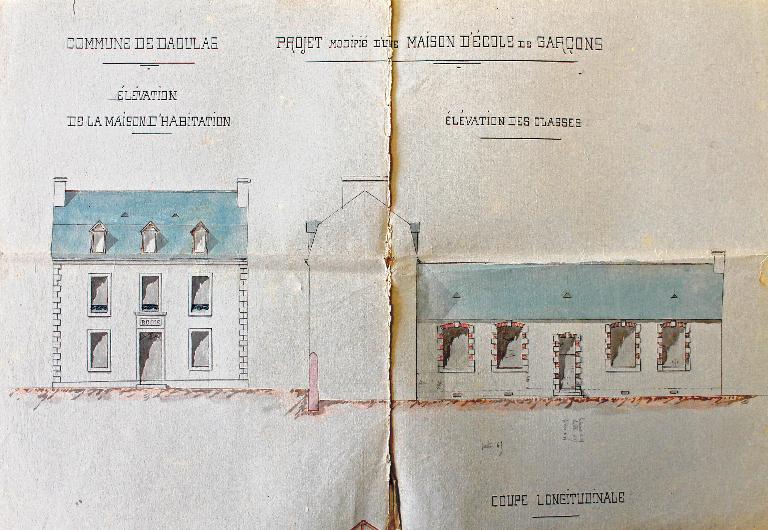 COMMUNE DE DAOULAS
PROJET MODIFIÉ D'UNE MAISON D'ÉCOLE DE GARÇONS
ÉLÉVATION
DE LA MAISON D'HABITATION
ÉLÉVATION DES CLASSES
COUPE LONGITUDINALE